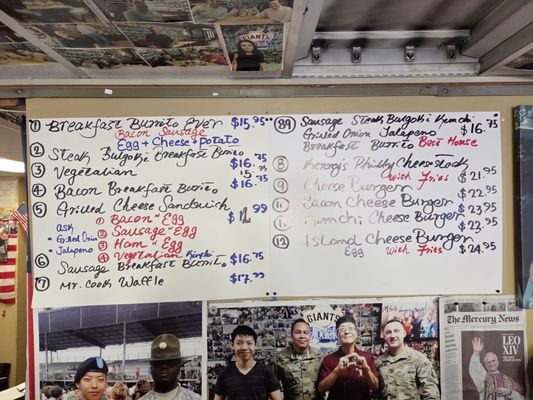 ① Breakfast Burrito Ever $15.95
Bacon Sausage
Egg + Cheese + potato
② Steak Bulgoki Breakfast Burrito $16.75
③ Vegetarian 15.95
④ Bacon Breakfast Burrito $16.75
⑤ Grilled Cheese Sandwich $12.99
ASK
" Grilled Onion
" Jalapeno
① Bacon "Egg
② Sausage "Egg
③ Ham "Egg
④ Vegetarian Kimchi
⑥ Sausage Breakfast Burrito $16.75
⑦ Mr. Cook Waffle $17.99
89 Sausage Steak Bulgoki Kimchi $16.75
Grilled Onion Jalapeno
Breakfast Burrito Best House
⑧ Philly Cheese Steak $21.95
With Fries
⑨ Cheese Burger $22.95
⑩ Bacon Cheese Burger $23.95
⑪ Kimchi Cheese Burger $22.95
⑫ Island Cheese Burger $24.95
Egg With Fries
GIANTS
GIANTS
The Mercury News
LEO
XIV